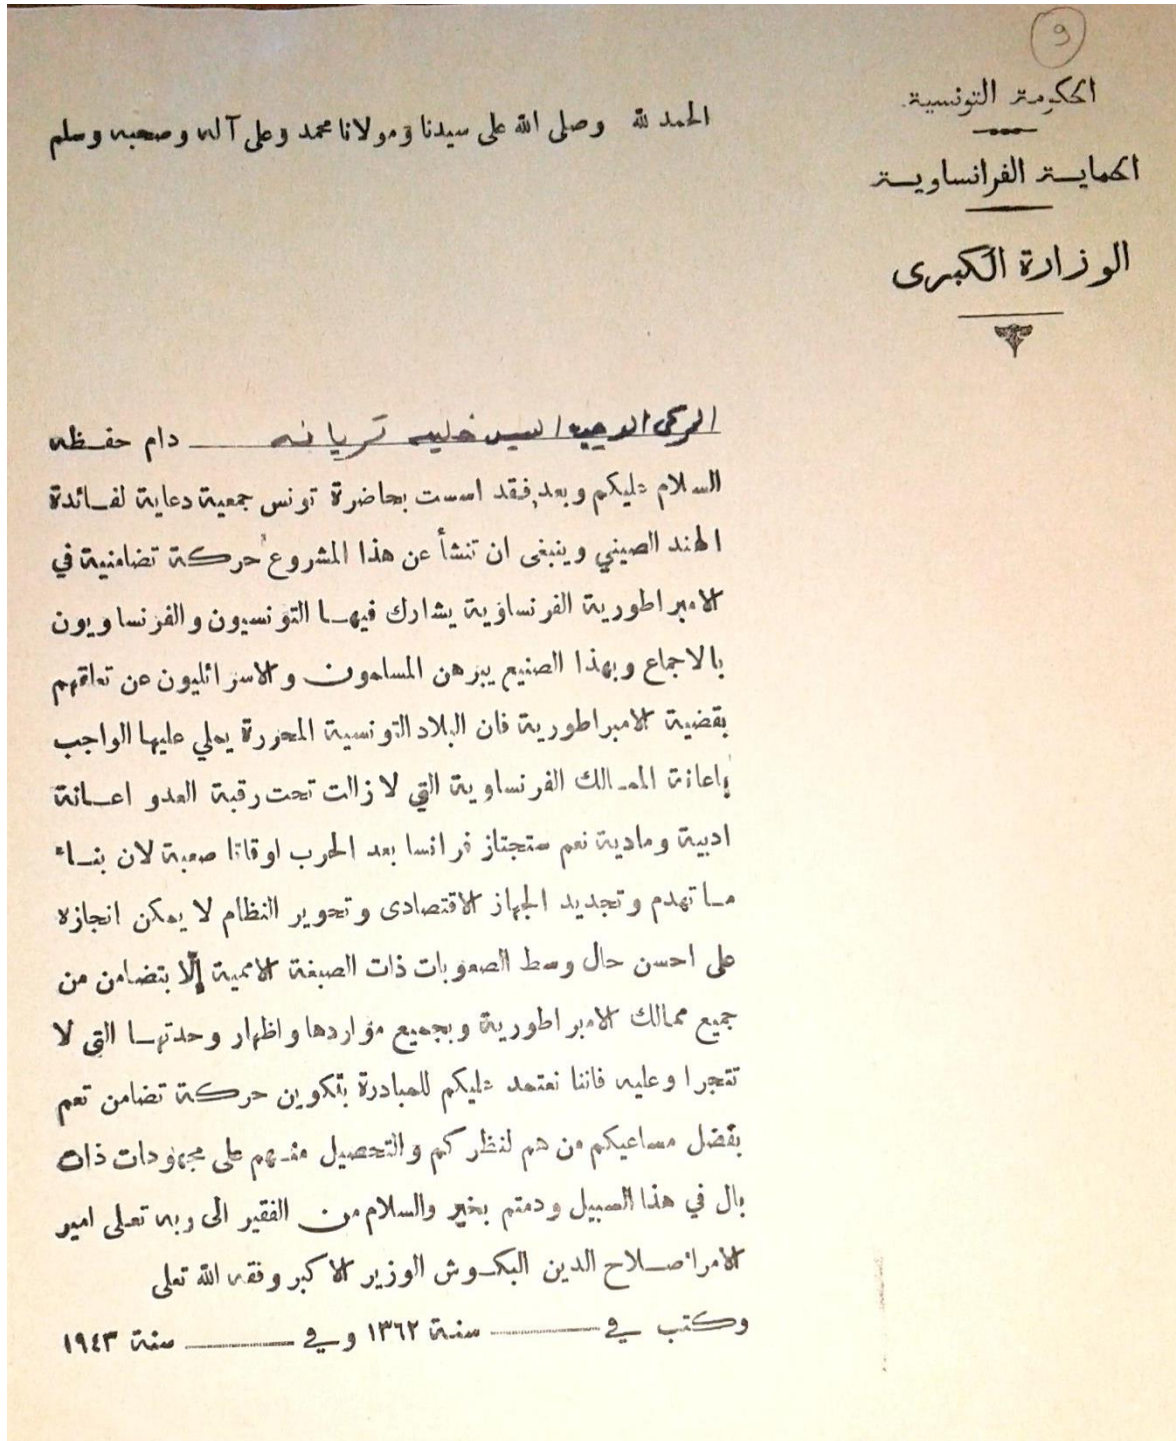 9
الحكومة التونسية
الحماية الفرانساوية
الوزارة الكبرى
الحمد لله وصلى الله على سيدنا ومولانا محمد وعلى آله وصحبه وسلم
السيد خليفة دام حفظه
السلام عليكم وبعد فقد اسست بحاضرة تونس جمعية دعاية لفائدة
الهند الصيني وينبغى ان تنشأ عن هذا المشروع حركة تضامنية في
الامبراطورية الفرنساوية يشارك فيها التونسيون والفرنساويون
بالاجماع وبهذا الصنيع يبرهن المسلمون والاسرائليون عن تعلقهم
بقضية الامبراطورية فان البلاد التونسية المحررة يملي عليها الواجب
إعانة الممالك الفرنساوية التي لا زالت تحت رقبة العدو اعانة
ادبية ومادية نعم ستجتاز فرانسا بعد الحرب اوقاتا صعبة لان بناء
ما تهدم وتجديد الجهاز الاقتصادى وتحوير النظام لا يمكن انجازه
على احسن حال وسط الصعوبات ذات الصبغة الاممية إلّا بتضامن من
جميع ممالك الامبراطورية وبجميع مواردها واظهار وحدتها التي لا
تتجرا وعليه فاننا نعتمد عليكم للمبادرة بتكوين حركة تضامن تعم
بفضل مساعيكم من هم لنظركم والتحصيل منهم على مجهودات ذات
بال في هذا السبيل ودمتم بخير والسلام من الفقير الى ربه تعلى امير
الامرا صلاح الدين البكوش الوزير الاكبر وفقه الله تعلى
وكتب في سنة ١٣٦٢ وفي سنة ١٩٤٣